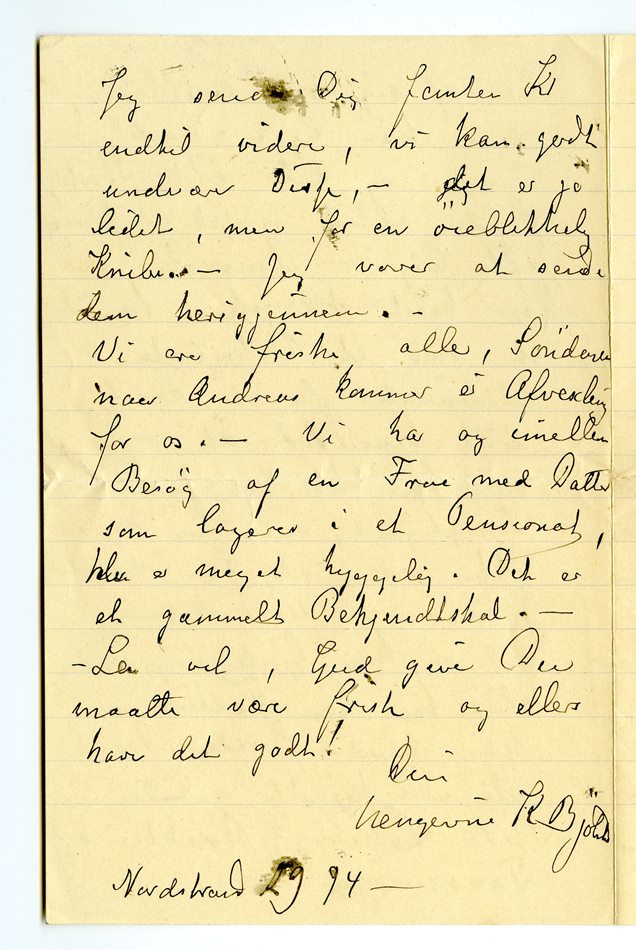 Jeg sender Dig femten Kr
indtil videre, vi kan godt
undvære Disse, – det er jo
lidet, men for en öieblikkelig
Knibe. – Jeg vover at sende
dem herigjennem. –
Vi ere friske alle, Söndagen
naar Andreas kommer er Afvexling
for os. – Vi har og imellem
Besög af en Frue med Datter
som logerer i et Pensionat,
er meget hyggelig. Det er
et gammelt Bekjendtskab. –
– Lev vel, Gud give Du
maatte være frisk og ellers
have det godt!
Din
hengivne K. Bjölst
Nordstrand 29 94 –